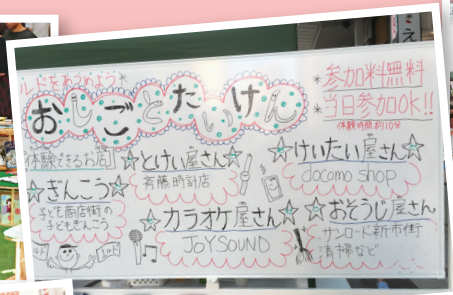 ルドをあつめよう
おしごとたいけん
*参加料無料
*当日参加OK!!
体験時間約10分
体験できるお店
☆とけい屋さん☆
斉藤時計店
☆けいたい屋さん☆
docomo shop
☆ぎんこう☆
子ども商店街の
子どもぎんこう
☆カラオケ屋さん☆
JOYSOUND
☆おそうじ屋さん☆
サンロード新市街
清掃など